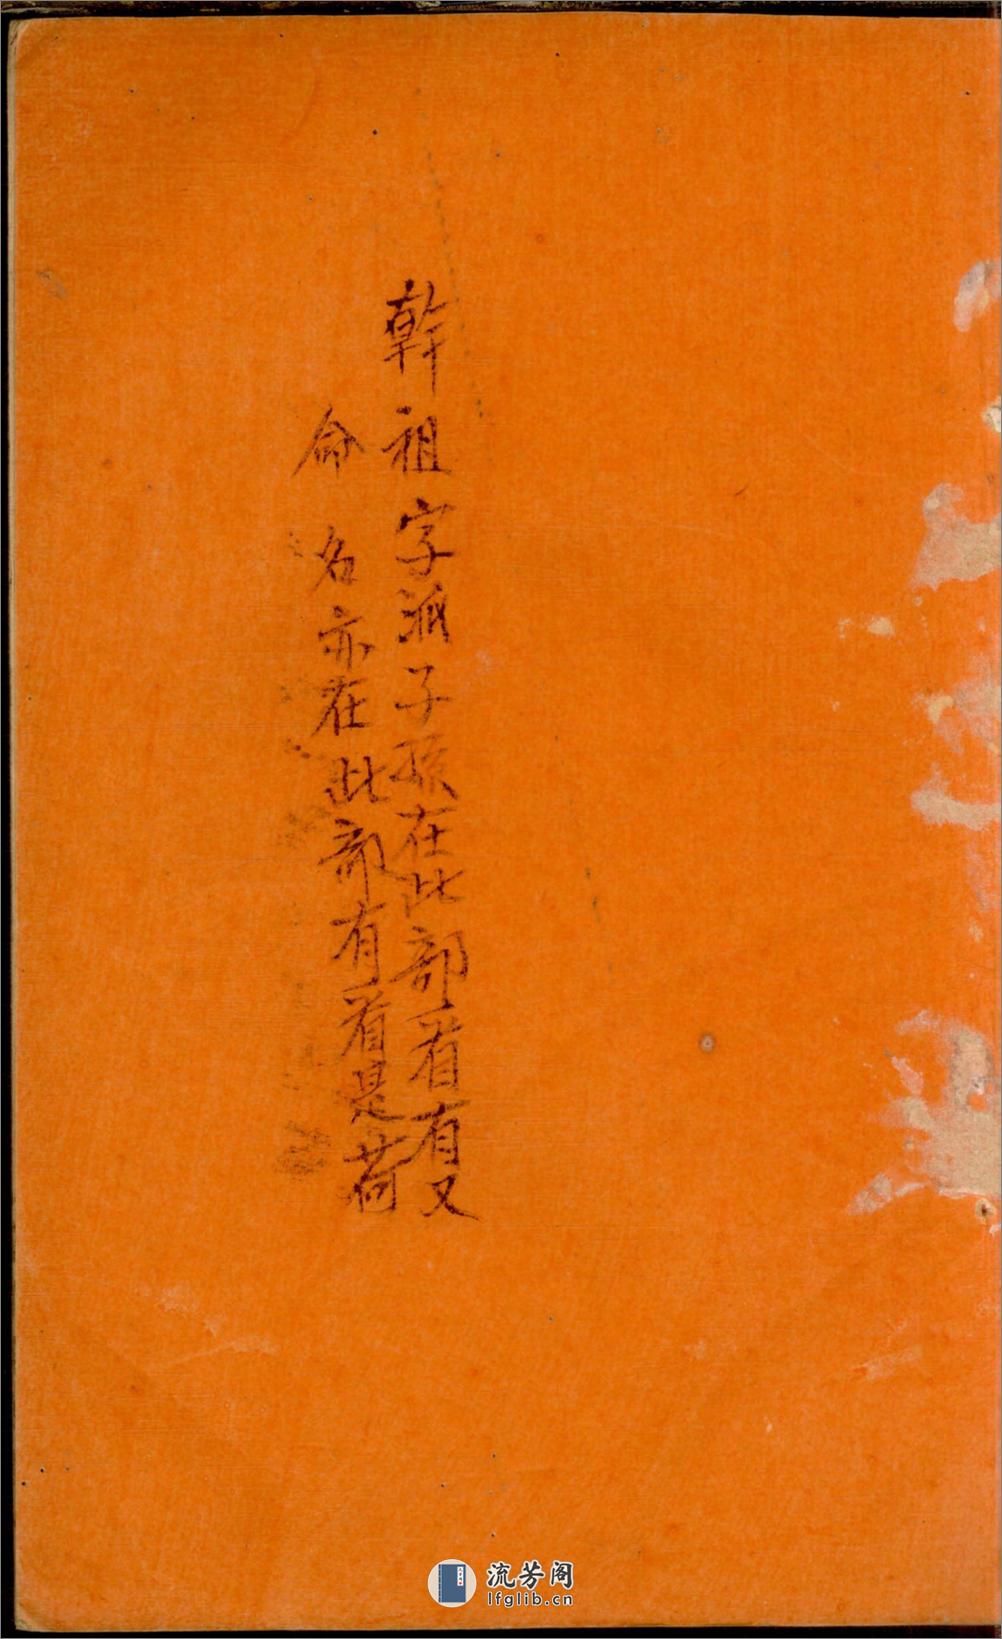 幹祖字派子孫在此部看有又
命名亦在此部有看是荷
流芳阁
lfglib.cn